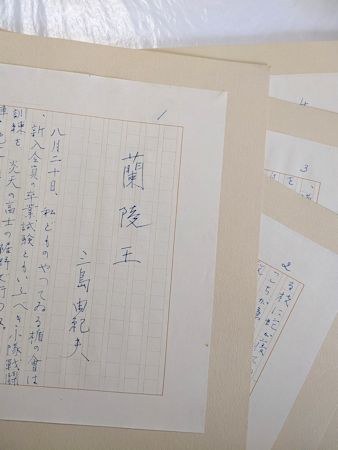 1
蘭陵王
三島由紀夫
八月二十日、私どものやつてゐる楯の會は
、新入会員の卒業試験ともいふべき小隊戦闘
訓練を、炎天の富士の裾野で行つた。
2
る枝に蛇が
3
を
4